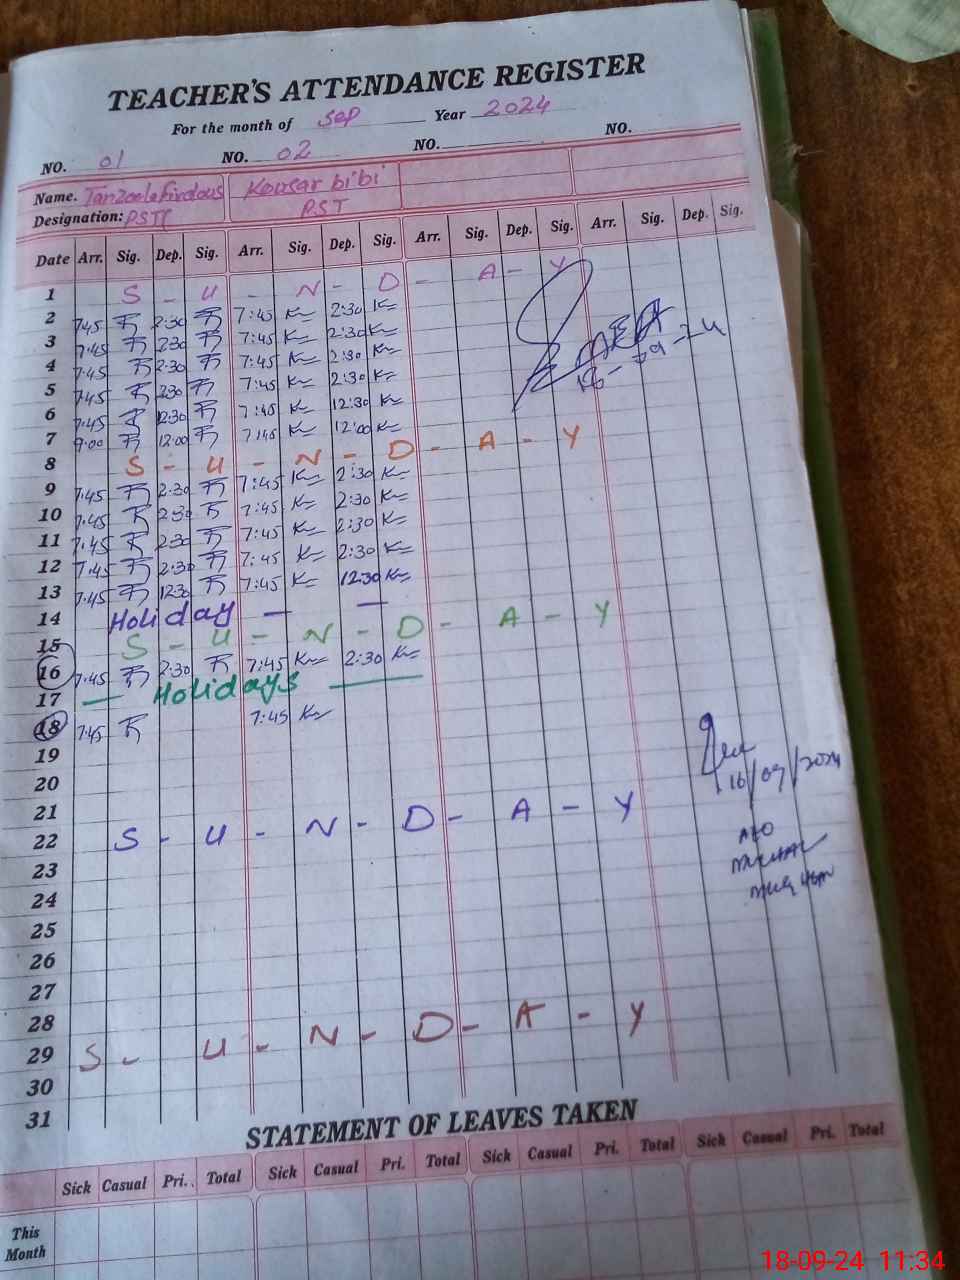 TEACHER'S ATTENDANCE REGISTER
For the month of Sep Year 2024
NO. 01 NO. 02 NO. NO.
Name. Tanzeela firdous Kousar bibi
Designation: PST PST
Date Arr. Sig. Dep. Sig. Arr. Sig. Dep. Sig. Arr. Sig. Dep. Sig. Arr. Sig. Dep. Sig.
1 S - U - N - D - A - Y
2 7:45 2:30 7:45 2:30
3 7:45 2:30 7:45 2:30
4 7:45 2:30 7:45 2:30
5 7:45 2:30 7:45 2:30
6 7:45 12:30 7:45 12:30
7 9:00 12:00 7:45 12:00
8 S - U - N - D - A - Y
9 7:45 2:30 7:45 2:30
10 7:45 2:30 7:45 2:30
11 7:45 2:30 7:45 2:30
12 7:45 2:30 7:45 2:30
13 7:45 12:30 7:45 12:30
14 Holiday — —
15 S - U - N - D - A - Y
16 7:45 2:30 7:45 2:30
17 — Holidays —
18 7:45 7:45
19
20
21
22 S - U - N - D - A - Y
23
24
25
26
27
28
29 S - U - N - D - A - Y
30
31
16/09/2024
STATEMENT OF LEAVES TAKEN
Sick Casual Pri. Total Sick Casual Pri. Total Sick Casual Pri. Total Sick Casual Pri. Total
This
Month
18-09-24 11:34